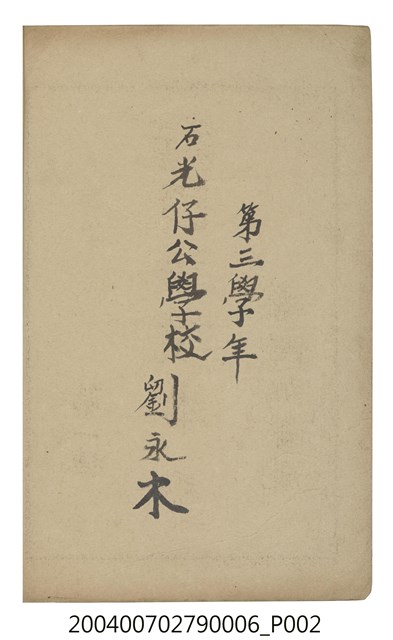 第三學年
石光仔公學校
劉永木
200400702790006_P002